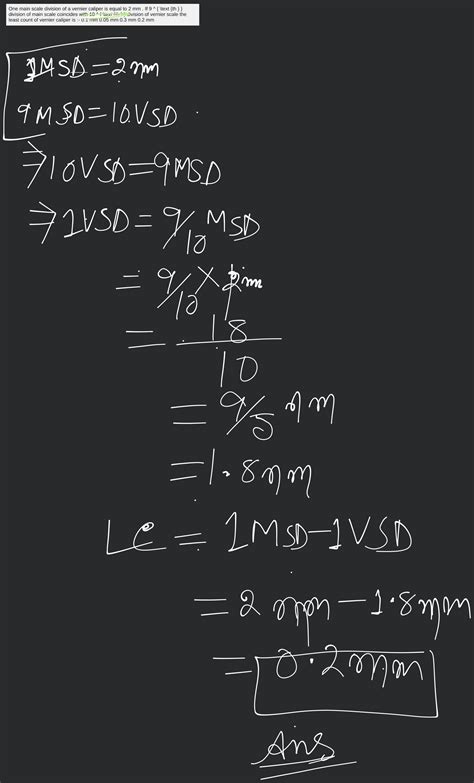 One main scale division of a vernier caliper is equal to 2 mm . If 9 ^ { \text {th } }
division of main scale coincides with 10 ^ { \text division of vernier scale the
least count of vernier caliper is :- 0.2 mm 0.05 mm 0.3 mm 0.2 mm
1MSD=2mm
9MSD=10VSD.
⇒10VSD=9MSD
⇒1VSD=9/10 MSD
=9/10×2mm
=18
10
=9/5 mm
=1.8mm
LC=1MSD-1VSD
=2mm-1.8mm
=0.2mm
Ans